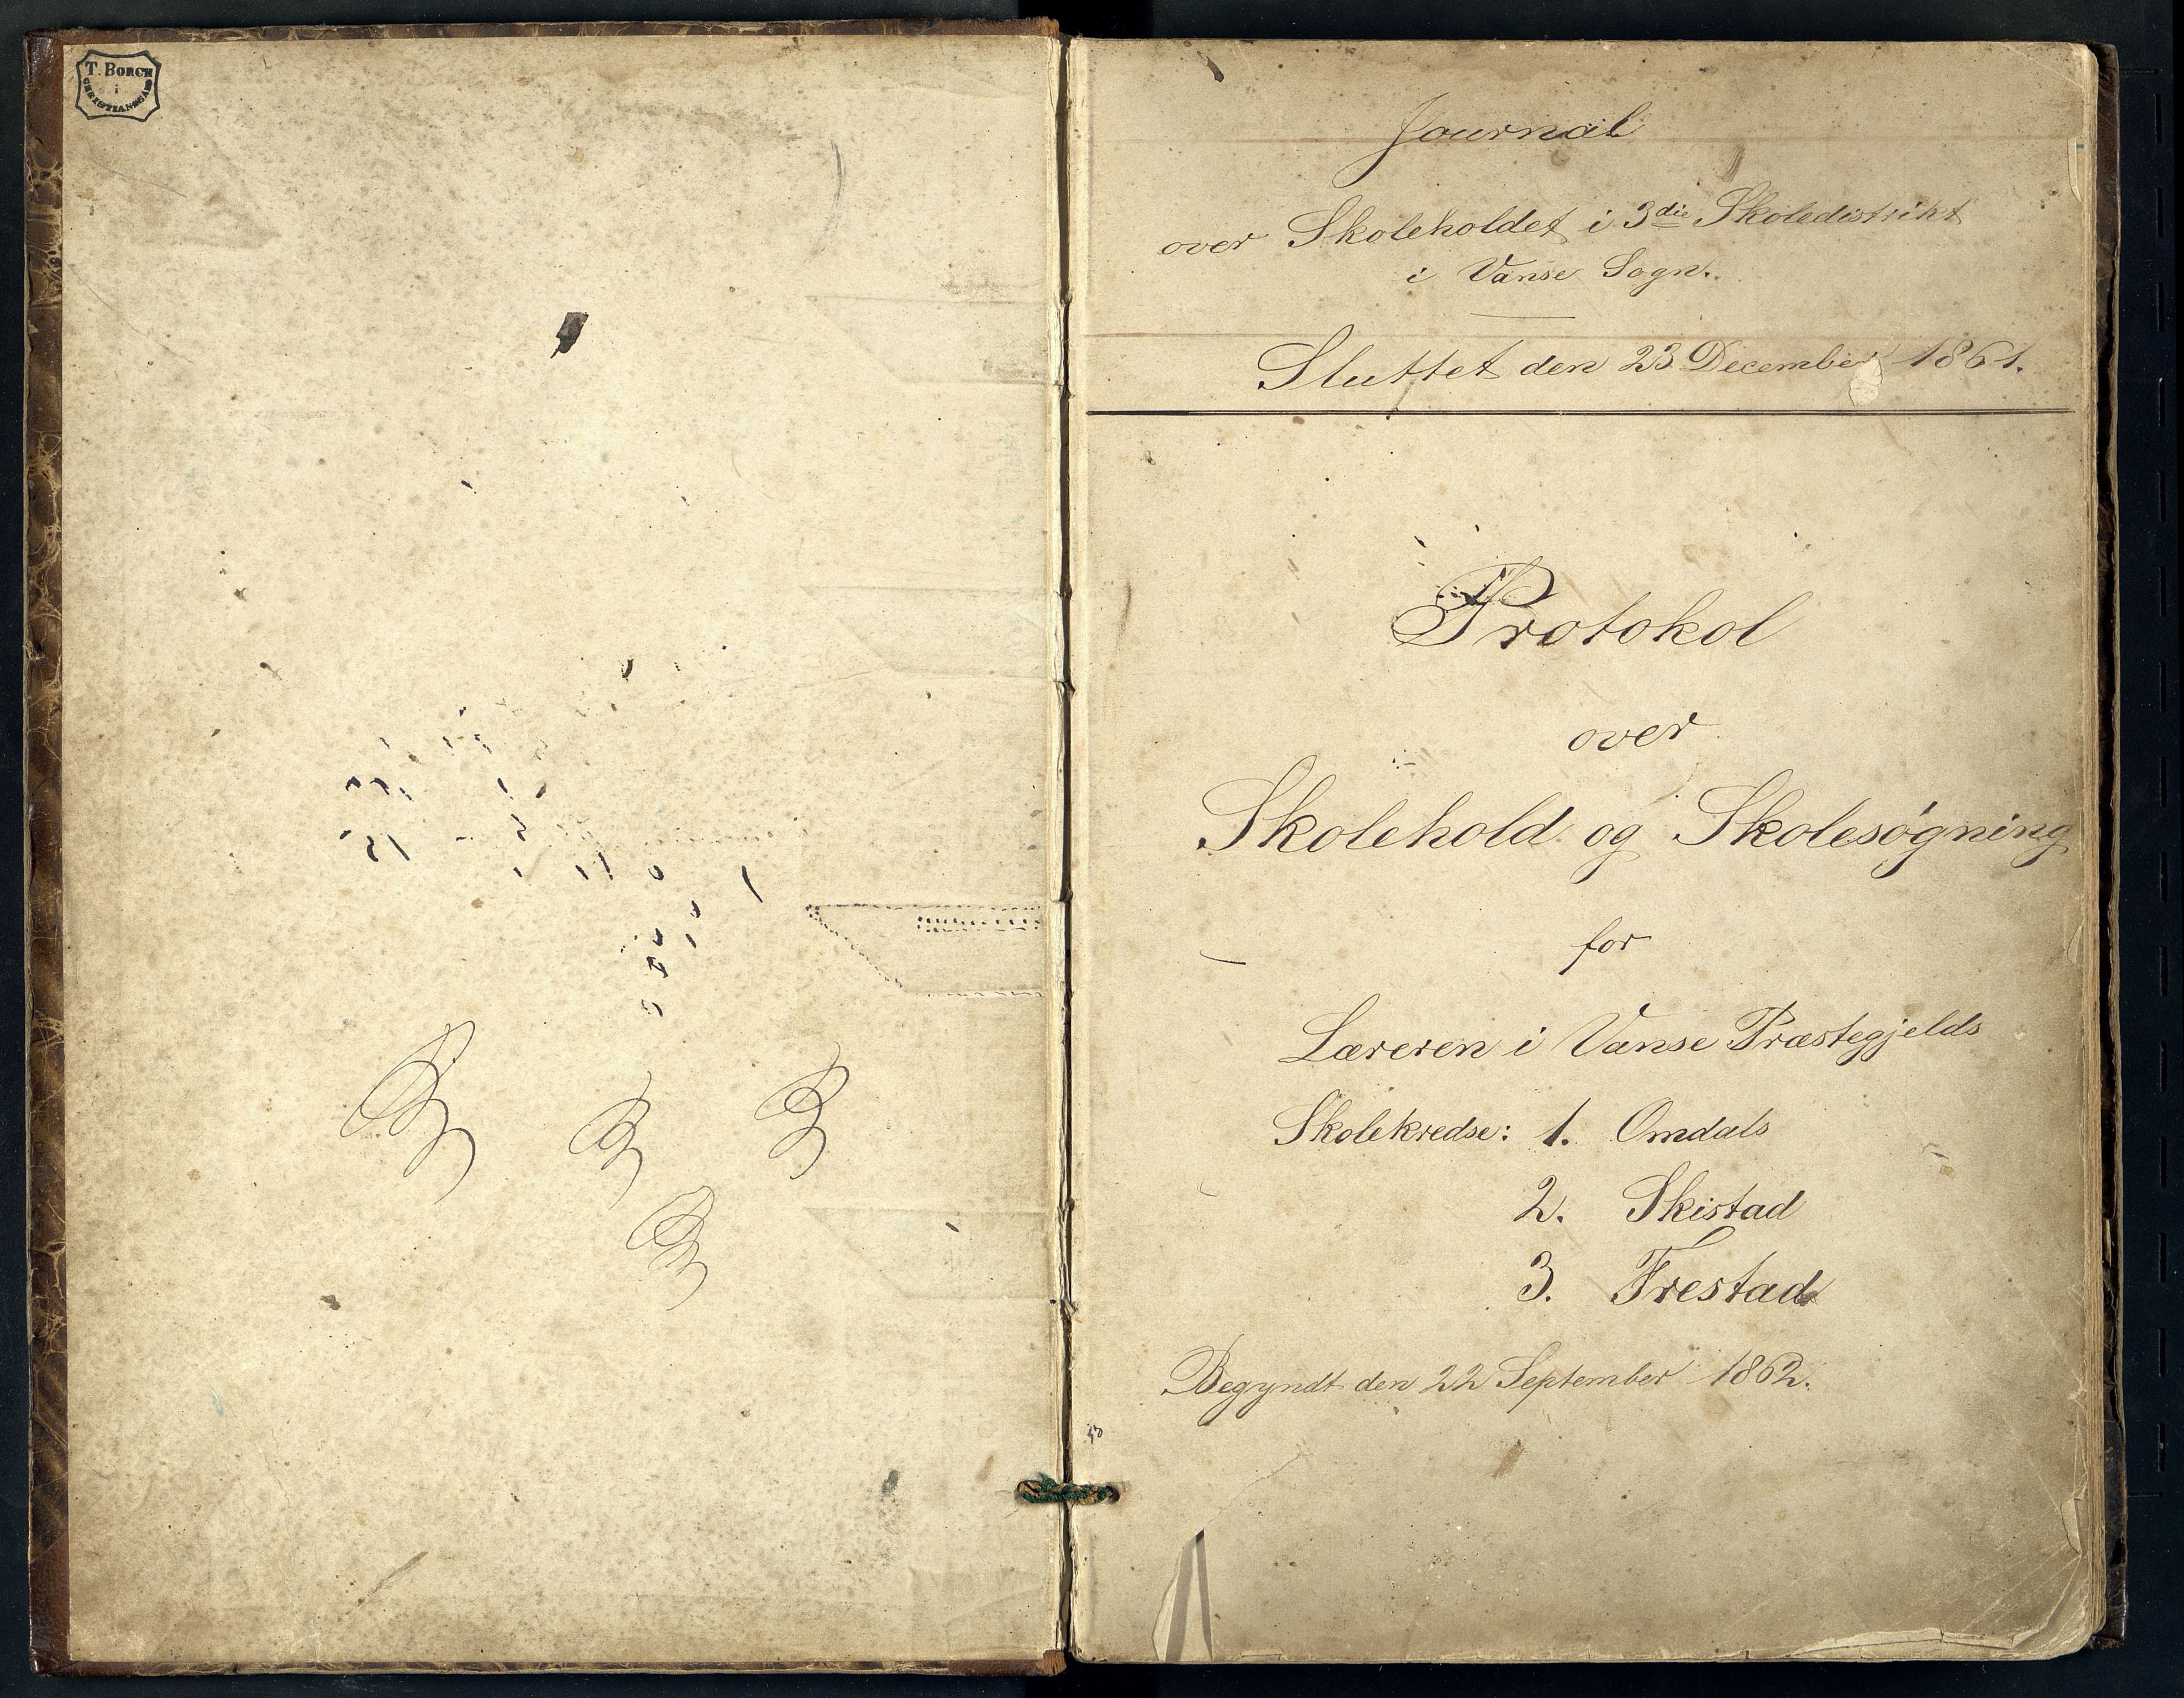 T. BORCH
i
CHRISTIANSSAND
Journal
over Skoleholdet i 3die Skoledistrikt
i Vanse Sogn.
Sluttet den 23 December 1861.
Protokol
over
Skolehold og Skolesøgning
for
Læreren i Vanse Præstegjelds
Skolekredse: 1. Omdals
2. Skistad
3. Frestad
Begyndt den 22 September 1862.